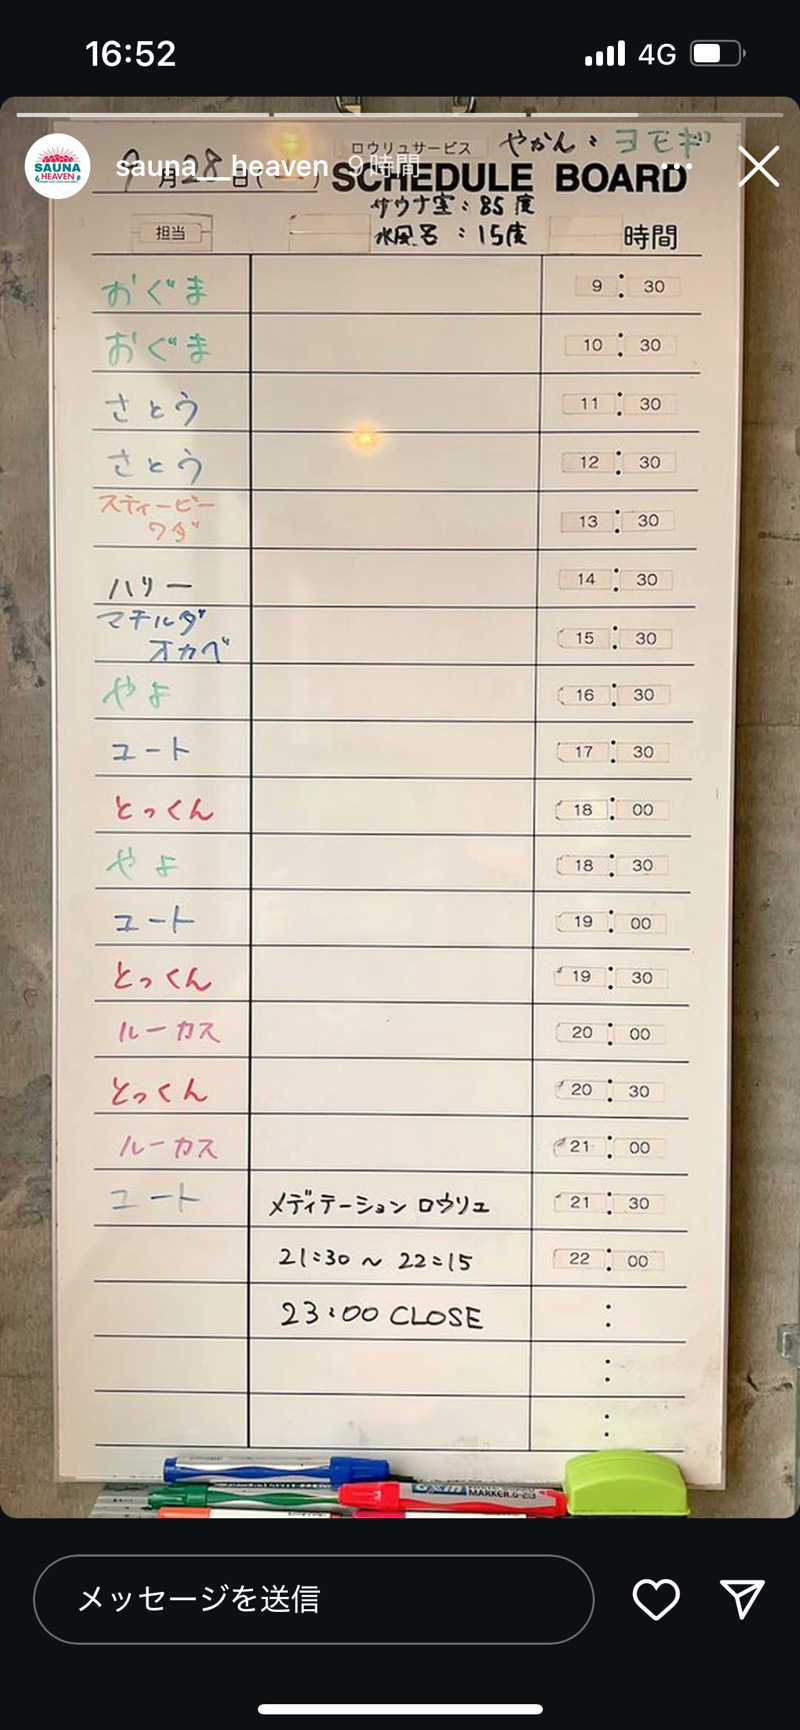 16:52
4G
sauna__heaven 9時間
ロウリュサービス やかん：ヨモギ
9月28日
SCHEDULE BOARD
サウナ室：85度
担当 水風呂：15度 時間
おぐま 9:30
おぐま 10:30
さとう 11:30
さとう 12:30
スティービー
ワダ 13:30
ハリー 14:30
マチルダ
オカベ 15:30
やよ 16:30
ユート 17:30
とっくん 18:00
やよ 18:30
ユート 19:00
とっくん 19:30
ルーカス 20:00
とっくん 20:30
ルーカス 21:00
ユート メディテーション ロウリュ 21:30
21:30～22:15 22:00
23:00 CLOSE
SAUNA
HEAVEN
MARKER
メッセージを送信